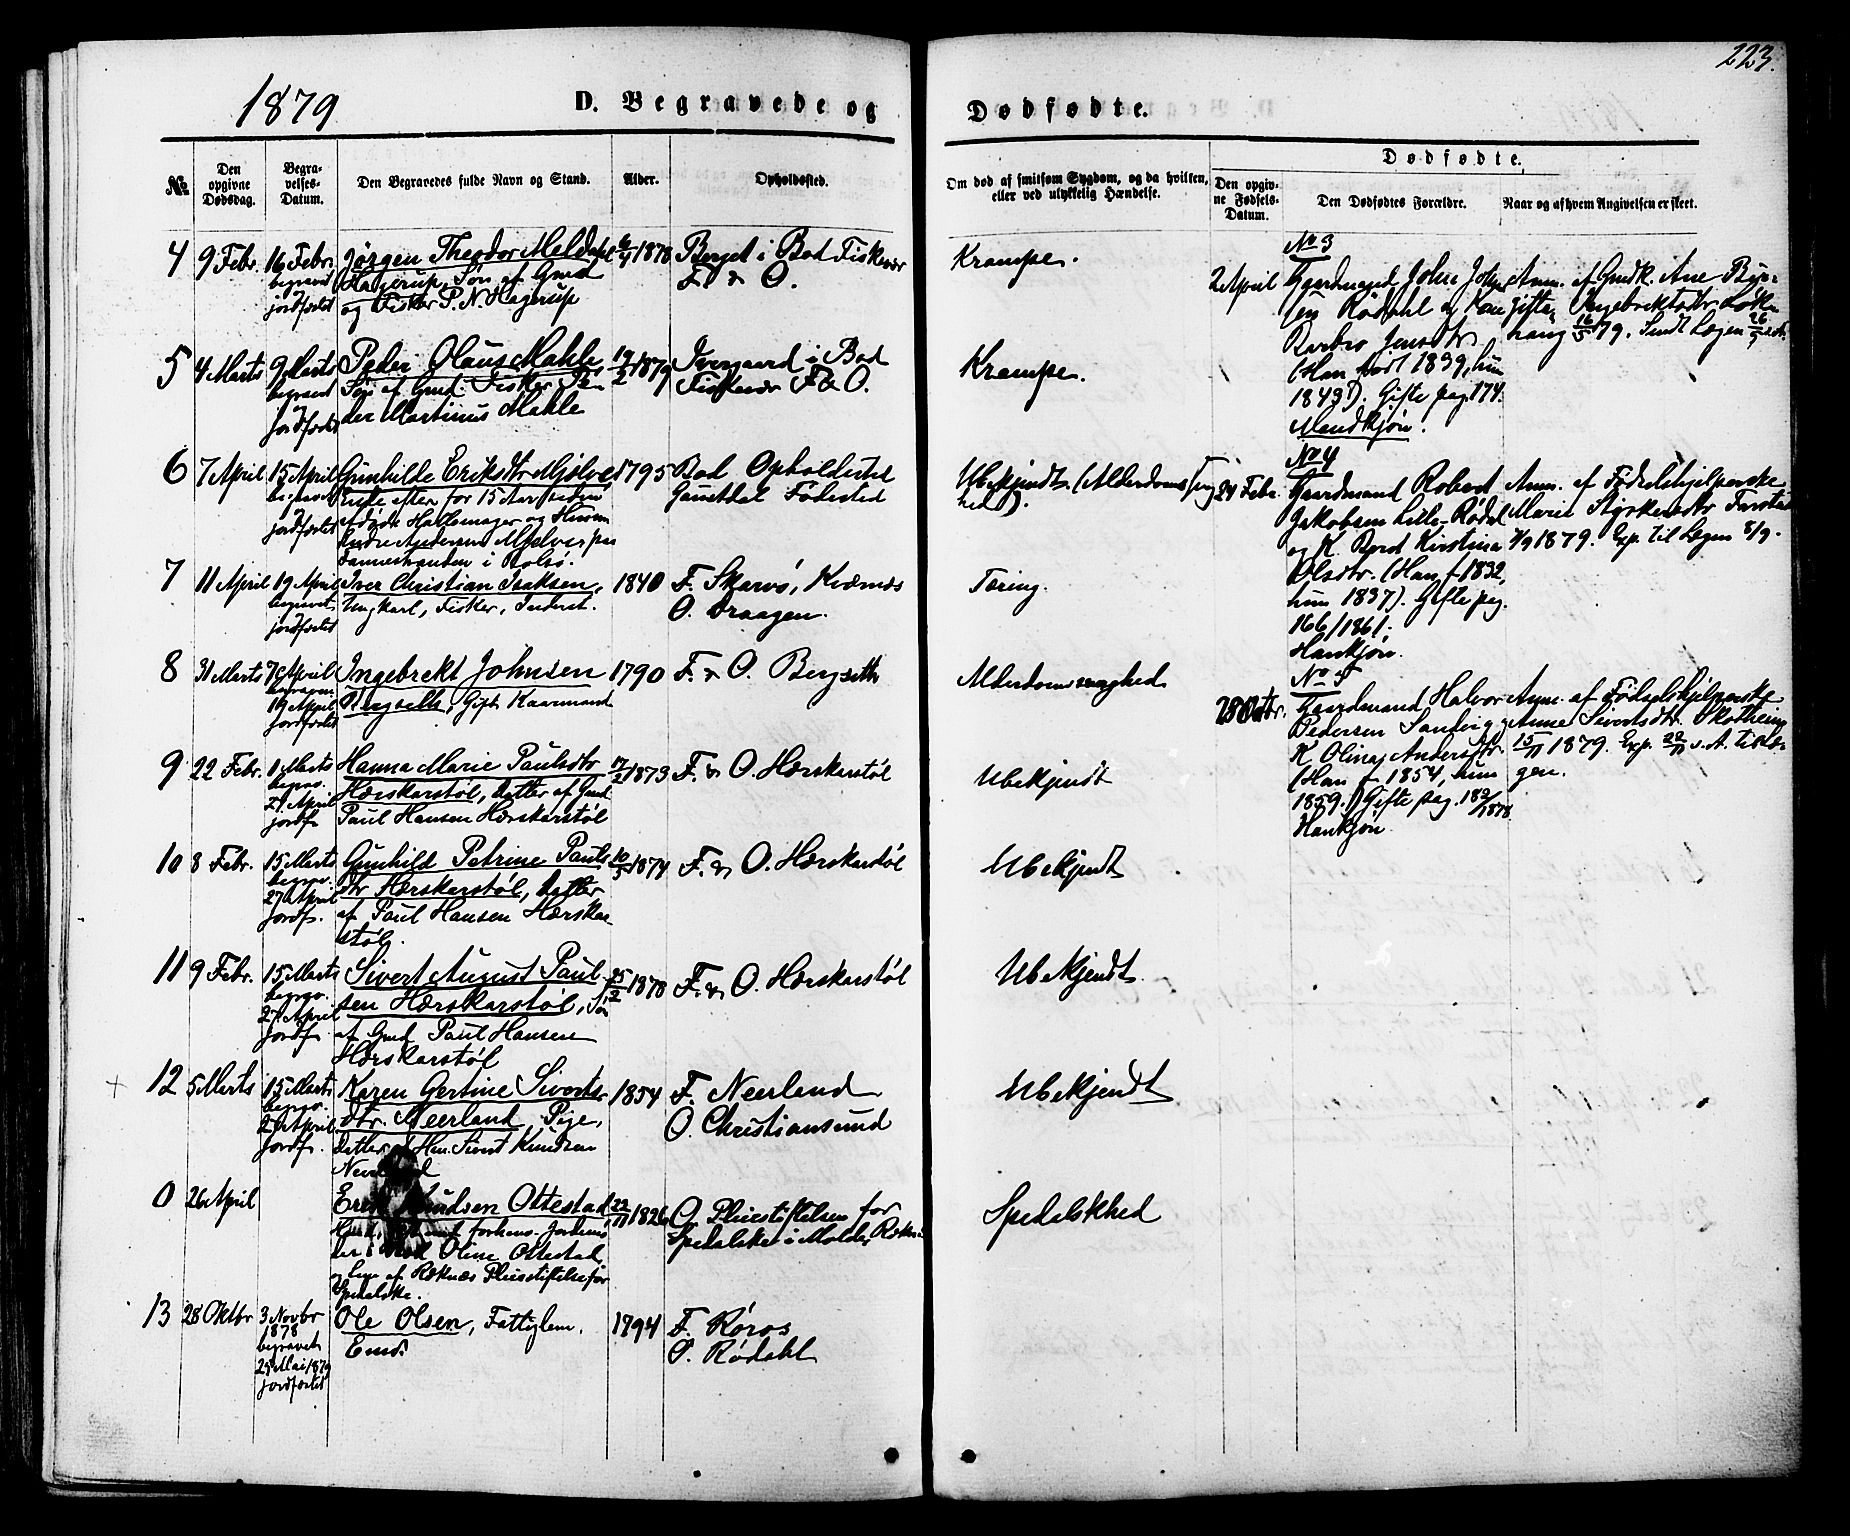 223.
1879
D. Begravede og
Dødfødte.
No.
Den opgivne Dødsdag.
Begravelses-Datum.
Den Begravedes fulde Navn og Stand.
Alder.
Opholdssted.
Om død af smitsom Sygdom, og da hvilken, eller ved ulykkelig Hændelse.
Dødfødte.
Den opgivne Fødsels-Datum.
Den Dødfødtes Forældre.
Naar og af hvem Angivelsen er skeet.
4
9 Febr.
16 Febr.
begravet
jordfæstet
Jørgen Theodor Meldahl
Hagerup, Søn af Gmd
og Fisker P. N. Hagerup
6/4 1878
Berget i Bod Fiskevær
F. & O.
Krampe.
5
4 Marts
9 Marts
begravet
jordfæstet
Peder Olaus Mahle
Søn af Gmd. Fisker Pe-
der Martinus Mahle
19/2 1879
Iversund i Bod
Fiskevær F & O.
Krampe.
6
7 April
15 April
begravet
jordfæstet
Gunhilde Eriksdtr Mjelve
Enke efter for 15 Aar siden
afdøde Hattemager og Husm
Andre Andersen Mjelve paa
i Bolsø.
1795
Bod Opholdssted
Gaustdal Fødested
Ubekjendt (Alderdomssvag-
hed).
7
11 April
19 April
begravet
jordfæstet
Iver Christian Isaksen,
Ungkarl, Fisker, Inderst.
1840
F. Skarvø, Kvernes
O. Draagen.
Tæring.
8
31 Marts
7 April
begraven
19 April
jordfæstet
Ingebrekt Johnsen
Bergseth, Gift Kaarmand
1790
F. & O. Bergseth
Alderdomssvaghed
9
22 Febr.
1 Marts
begrav.
27 April
jordf.
Hanna Marie Paulsdtr
Hærskarstøl, Datter af Gmd
Paul Hansen Hærskarstøl
17/2 1873
F. & O. Hærskarstøl
Ubekjendt
10
8 Febr.
15 Marts
begrav.
27 April
jordf.
Gunhild Petrine Pauls
dtr Hærskarstøl, Datter
af Paul Hansen Hærskar
støl.
10/5 1874
F. & O. Hærskarstøl
Ubekjendt
11
9 Febr.
15 Marts
begrav.
27 April
jordf.
Sivert August Paul-
sen Hærskarstøl, Søn
af Gmd Paul Hansen
Hærskarstøl
25/2 1878
F. & O. Hærskarstøl
Ubekjendt
12
5 Marts
15 Marts
begrav.
27 April
jordf.
Karen Gertine Siverts
dtr. Neerland, Pige,
Datter af Hm. Sivert Knudsen
Neerland
1854
F. Neerland
O. Christiansund
Ubekjendt
0
26 April
Erik Knudsen Ottestad,
forhens.
Oline Ottestad,
og Lem af Reknæs Pleiestiftelse for
Spedalske.
22/11 1826
O. Pleiestiftelsen for
Spedalske i Molde, Reknæs
Spedalskhed
13
28 Oktbr
3 Novbr
1878
begravet
25 Mai 1879
jordfæstet
Ole Olsen, Fattiglem,
Enkem.
1794
F. Røros
O. Rødahl
No 3
2 April
Gaardmand John Johan-
sen Rødahl og Kone
Barbro Jensdtr
(Han født 1839, hun
1843). Gifte pag. 174.
Mandkjøn.
Anm. af Gmdk. Ane
Ingebrektsdtr Løken
16/5 79. Sendt Lægen 26/5
No 4
24 Febr.
Gaardmand Robert
Jakobsen Lille-Rødal
og K. Berit Kirstina
Olsdtr. (Han f 1832,
hun 1837). Gifte pag.
166/1861.
Hankjøn.
Anm. af Fødselshjelperske
Marie Styrkersdtr Farstad
7/9 1879. Exp. til Lægen 8/9.
No 5
28 Oktbr.
Gaardmand Halvor
Pedersen Sandvig og
K Olina Andersdtr
(Han f 1854, hun
1859.) Gifte pag. 182/1878
Hankjøn.
Anm. af Fødselshjelperske
Anne Sivertsdtr. Skotheim
15/11 1879. Exp. 22/11 s. A. til Læ-
gen.